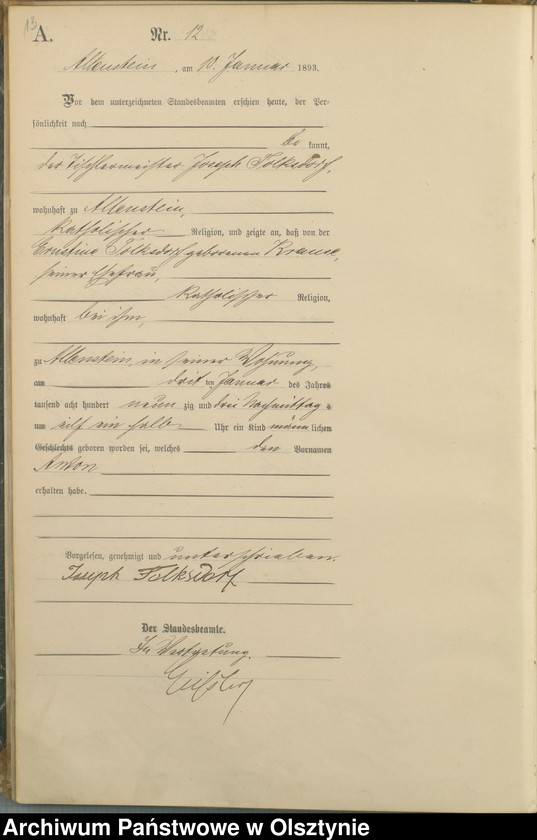 13
A.
Nr. 12
Allenstein, am 10. Januar 1893.
Vor dem unterzeichneten Standesbeamten erschien heute, der Per-
sönlichkeit nach
be kannt,
der Tischlermeister Joseph Tolksdorf,
wohnhaft zu Allenstein,
katholischer Religion, und zeigte an, daß von der
Ernstine Tolksdorf geborenen Krause,
seiner Ehefrau,
katholischer Religion,
wohnhaft bei ihm,
zu Allenstein, in seiner Wohnung,
am dritten Januar des Jahres
tausend acht hundert neunzig und drei Nachmittags
um elf ein halb Uhr ein Kind männlichen
Geschlechts geboren worden sei, welches den Vornamen
Anton
erhalten habe.
Vorgelesen, genehmigt und unterschrieben.
Joseph Tolksdorf
Der Standesbeamte.
In Vertretung.
Archiwum Państwowe w Olsztynie